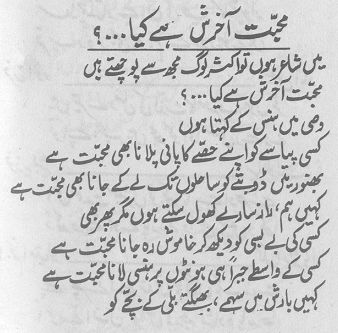 محبّت آخرش ہے کیا...؟
میں شاعر ہوں تو اکثر لوگ مجھ سے پوچھتے ہیں
محبّت آخرش ہے کیا...؟
وصیؔ میں ہنس کے کہتا ہوں
کسی پیاسے کو اپنے حصّے کا پانی پلانا بھی محبّت ہے
بھنور میں ڈوبتے کو ساحلوں تک لے کے جانا بھی محبّت ہے
کہیں ہم، راز سارے کھول سکتے ہوں مگر پھر بھی
کسی کی بے بسی کو دیکھ کر خاموش رہ جانا محبّت ہے
کسی کے واسطے جبراً ہی ہونٹوں پر ہنسی لانا محبّت ہے
کہیں بارش میں سہمے، بھیگتے بلّی کے بچّے کو